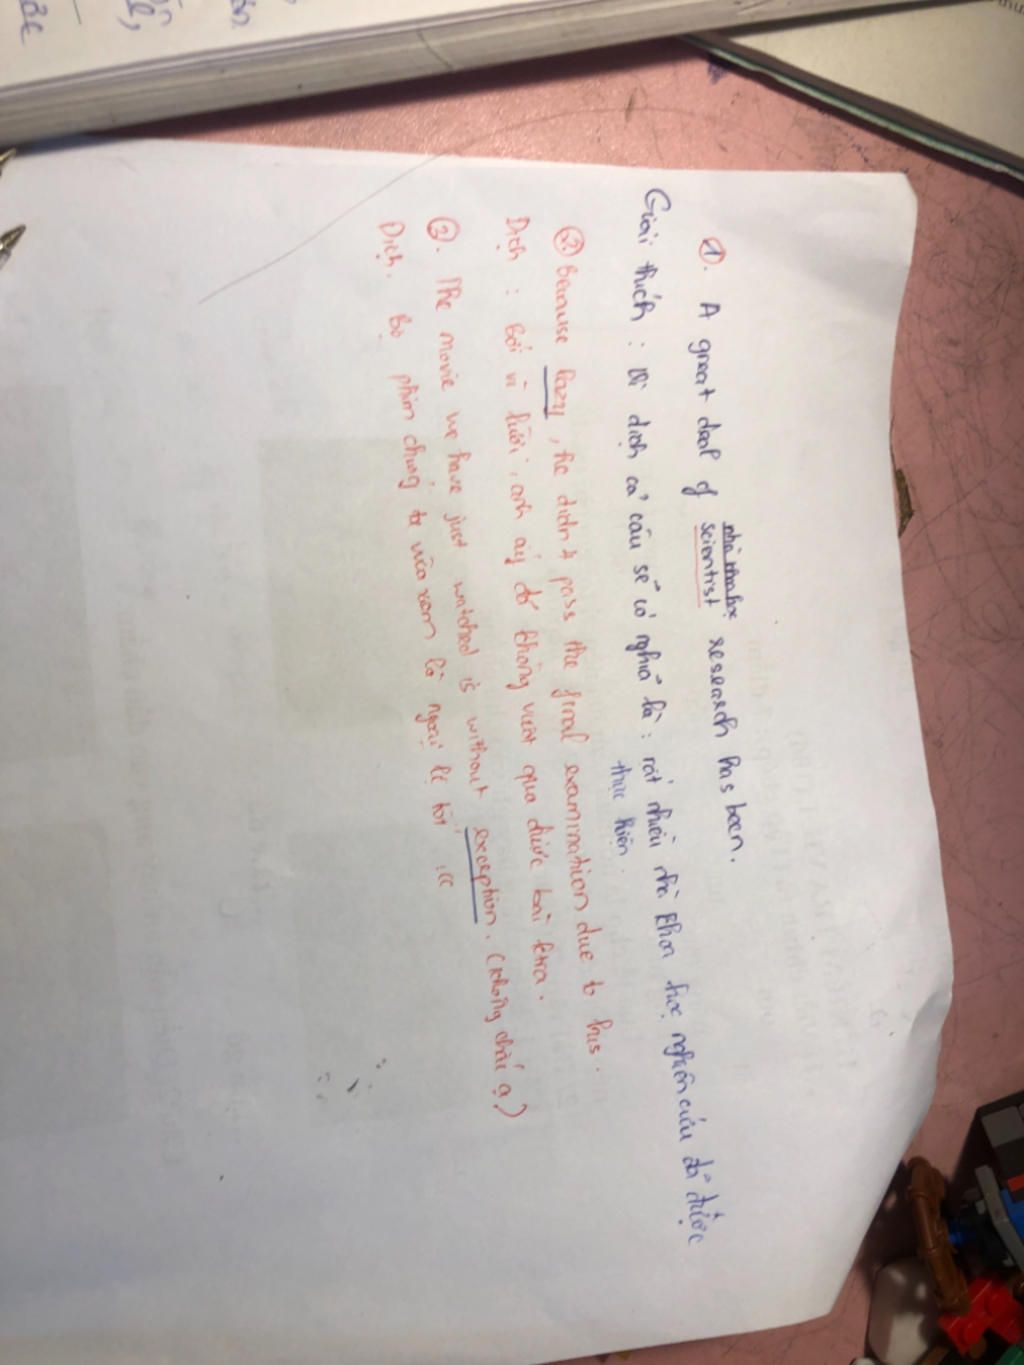 nhà khoa học
1. A great deal of scientist research has been.
Giải thích : Vì dịch cả câu sẽ có nghĩa là : rất nhiều nhà khoa học nghiên cứu đã được
thực hiện.
2. Because lazy, he didn't pass the final examination due to his.
Dịch : bởi vì lười, anh ấy đã không vượt qua được bài ktra.
3. The movie we have just watched is without exception. (không chắc ạ)
Dịch. Bộ phim chúng ta vừa xem là ngoại lệ